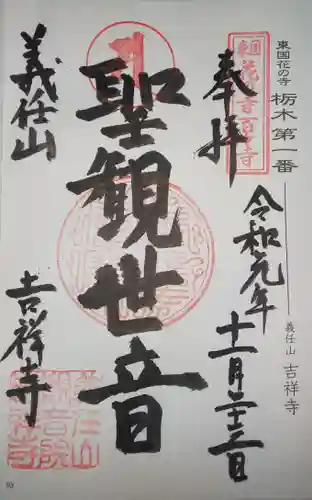 東国花の寺 栃木第一番
義任山 吉祥寺
奉拝
令和元年十一月二十三日
聖観世音
義任山
吉祥寺